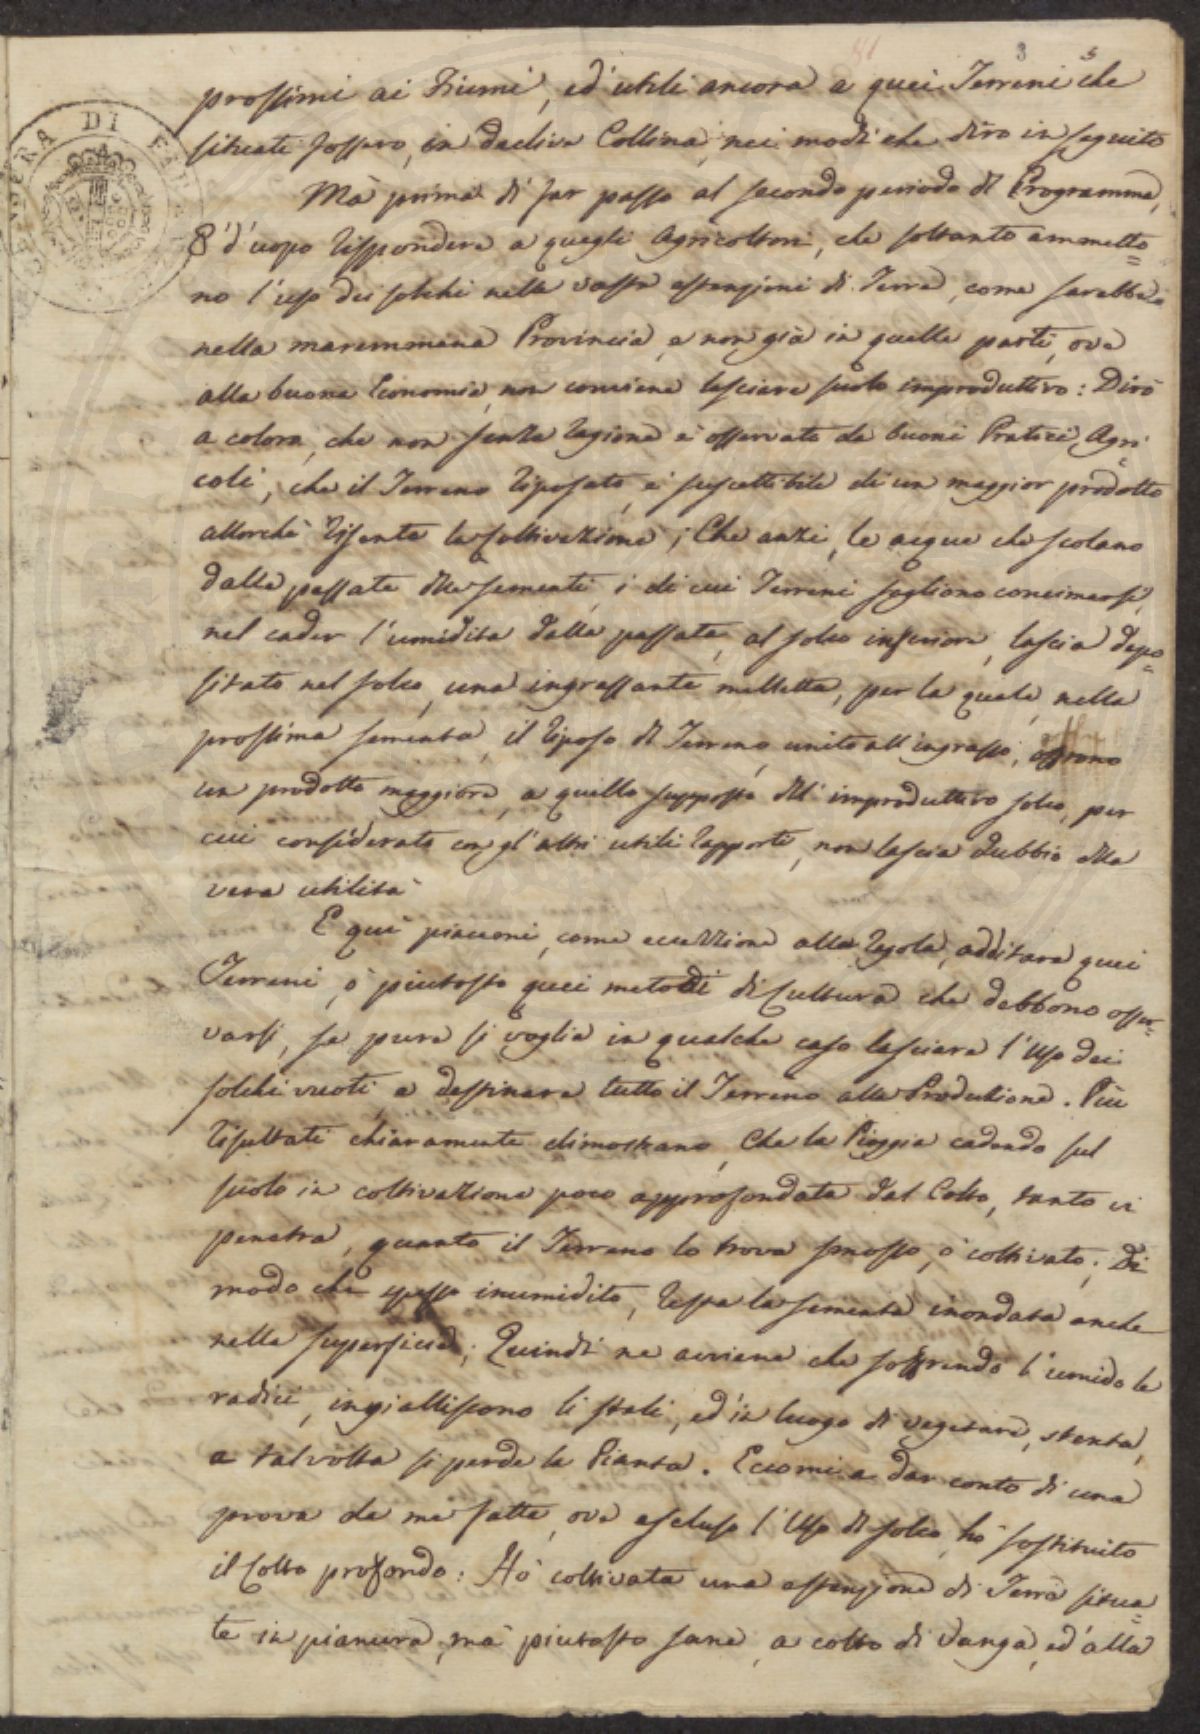 81 3 5
prossimi ai Fiumi, ed'utili ancora a quei Terreni che
situati fossero, in declive Collina, nei modi che dirò in seguito
Mà prima di far passo al secondo periodo di Programma,
È d'uopo rispondere a quegli Agricoltori, che soltanto ammetto=
no l'uso dei solchi nelle vaste estenzioni di Terra, come sarebbe
nella maremmana Provincia, e non già in quelle parti, ove
alla buona Economia, non conviene lasciare suolo improduttivo: Dirò
a coloro, che non senza ragione è osservato da buoni Pratici, Agri=
coli, che il Terreno riposato, è suscettibile di un maggior prodotto
allorchè risente la coltivazione; Che anzi, le acque che scolano
dalle passate delle sementi, i di cui Terreni sogliono concimarsi,
nel cader l'umidità dalla passata, al solco inferiore, lascia depo=
sitato nel solco, una ingrassante melletta, per la quale, nella
prossima sementa, il riposo di Terreno, unito all'ingrasso, offrono
un prodotto maggiore, a quello supposto dell'improduttivo solco, per
cui considerato con gl'altri utili rapporti, non lascia dubbio della
vera utilità
E quì piacemi, come eccezzione alla regola, additare quei
Terreni, ò piutosto quei metodi di Cultura che debbono osser=
varsi, se pure si voglia in qualche caso lasciare l'Uso dei
solchi vuoti, e destinare tutto il Terreno alla Produzione. Più
risultati chiaramente dimostrano, che la Pioggia cadendo sul
suolo in coltivazione poco approfondata dal Colto, tanto vi
penetra, quanto il Terreno lo trova smosso, ò coltivato; Di
modo che esso inumidito, resta la sementa inondata anche
nella superficie; Quindi ne avviene che soffrendo l'umido le
radici, ingialliscono li steli, ed'in luogo di vegetare, stenta,
e talvolta si perde la Pianta. Eccomi a dar conto di una
prova da me fatta, ove escluso l'Uso di solco, hò sostituito
il Colto profondo: Hò coltivata una estenzione di Terra situa=
ta in pianura, mà piutosto sana, a colto di Vanga, ed'alla